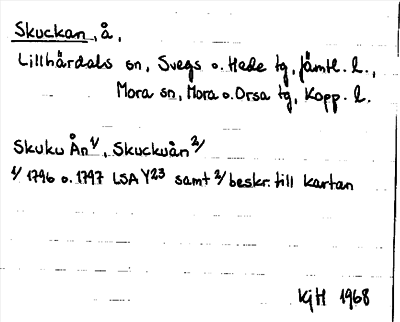 Skuckan, å,
Lillhärdals sn, Svegs o. Hede tg, Jämtl. l.,
Mora sn, Mora o. Orsa tg, Kopp. l.
Skuku Ån 1/, Skuckuån 2/
1/ 1796 o. 1797 LSA Y23 samt 2/ beskr. till kartan
KjH 1968